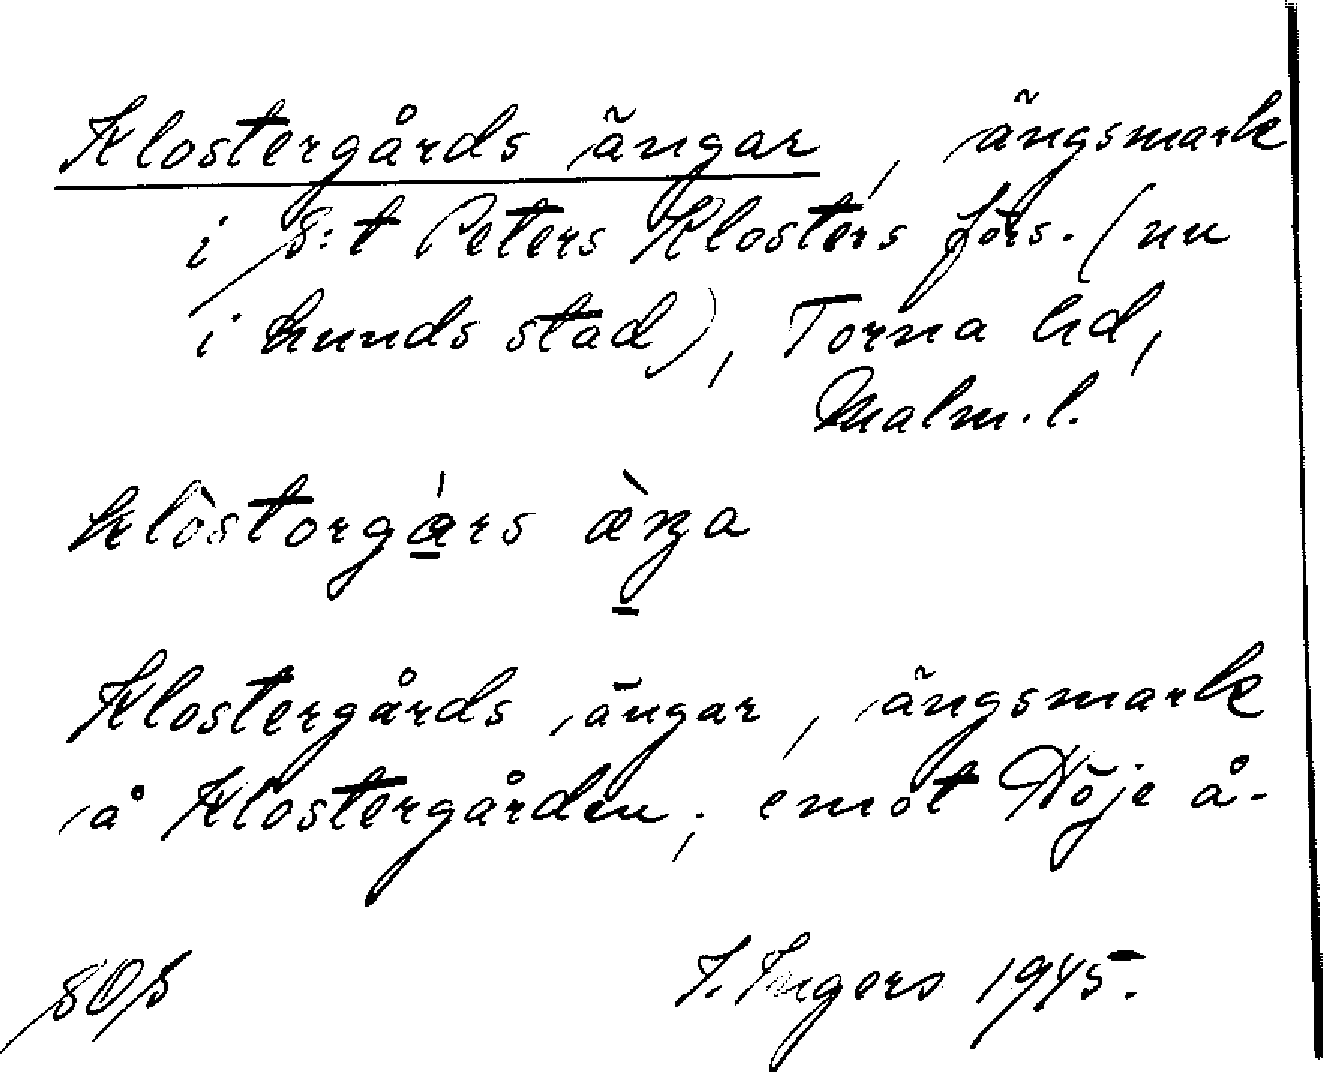 Klostergårds ängar, ängsmark
i S:t Peters Klosters förs. (nu
i Lunds stad), Torna hd,
Malm. l.
klòstorgá̱rs æ̀ŋa
Klostergårds ängar, ängsmark
å Klostergården, emot Höje å.
SOS
I. Ingers 1945.